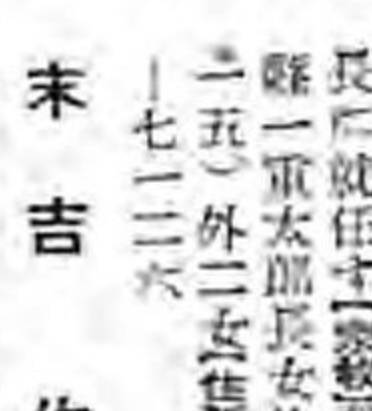 長に就任す【宗教】
一軍太郎長女
一五）外二女【住
一七一二六
末吉